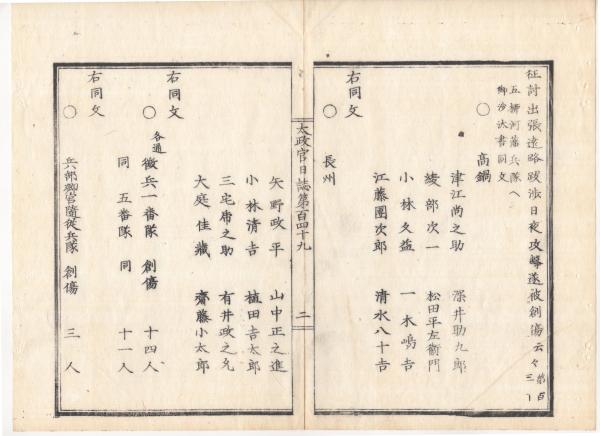 征討出張遠路跋渉日夜攻撃遂被創傷云々
第百三
五 柳河藩兵隊へ
御沙汰書同文
○高鍋
津江尚之助 深井助九郎
綾部次一 松田平左衛門
小林久益 一木嶋吉
江藤團次郎 清水八十吉
右同文
○長州
太政官日誌第百四十九 二
矢野政平 山中正之進
小林清吉 植田吉太郎
三宅常之助 有井政之允
大庭佳藏 齋藤小太郎
右同文
各通
○徴兵一番隊 創傷 十四人
同 五番隊 同 十一人
右同文
○兵部卿宮隨従兵隊 創傷 三人